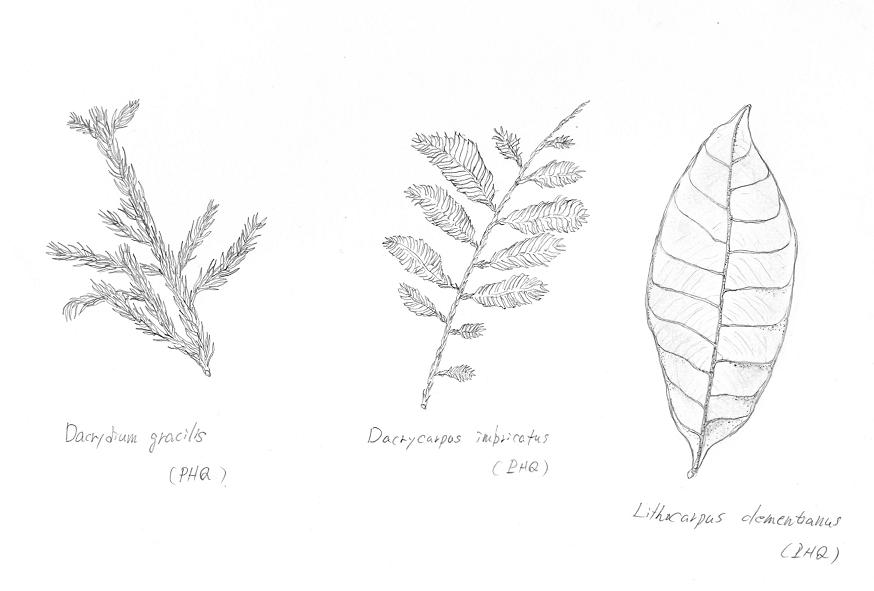 Dacrydium gracilis
(PHQ)
Dacrycarpus imbricatus
(PHQ)
Lithocarpus clementianus
(PHQ)